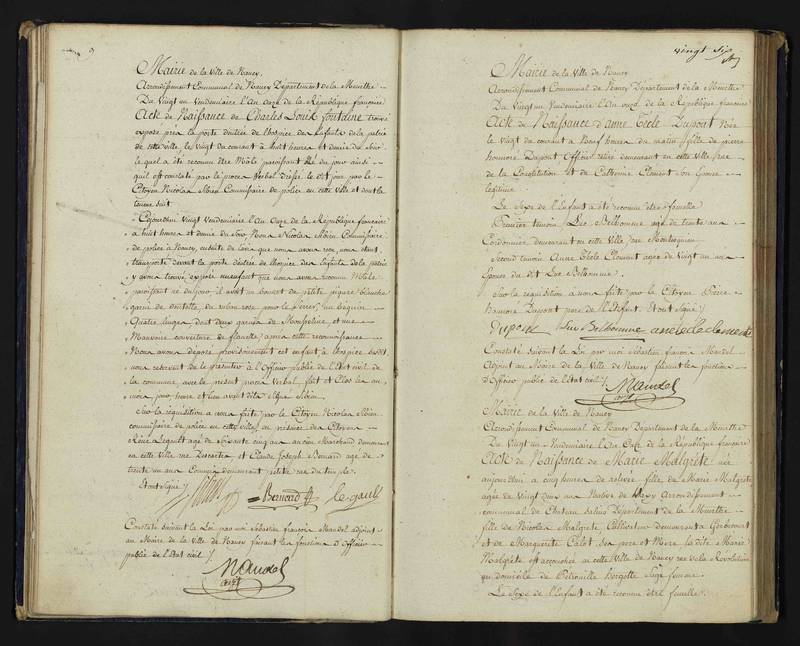 9
Mairie de la Ville de Nancy.
Arrondissement Communal de Nancy Département de la Meurthe
Du Vingt un Vendemiaire l'An Onze de la République française
Acte de Naissance de Charles Louis fontaine trouvé
exposé près la porte d'entrée de l'hospice des Enfants de la patrie
de cette ville, le vingt du courant à huit heures et demie du Soir
lequel a été reconnu être Mâle paroissant né du jour ainsi
qu'il est constaté par le procès Verbal dressé le dit jour par le
Citoyen Nicolas Commissaire de police en cette Ville et dont la
teneur suit
Cejourdhui Vingt Vendemiaire l'An Onze de la République française
à huit heures et demie du Soir Nous Nicolas Commissaire
de police à Nancy, ensuite de l'avis que nous avons reçu, nous étant
transporté devant la porte d'entrée de l'hospice des Enfants de la patrie
y avons trouvé exposé un enfant que nous avons reconnu Mâle
paroissant né du jour, il avoit un bonnet de petite piqure blanche
garni de dentelle, du ruban rose pour le serrer, un béguin
Quatre langes, dont deux garnis de Mousseline, et une
Mauvaise couverture de flanelle; après cette reconnoissance
Nous avons déposé provisoirement cet enfant à l'hospice
nous reservant de le présenter à l'Officier public de l'Etat civil de
la commune, avec le présent procès verbal, fait et Clos les an,
mois, jour, heure et lieu avant dits Signé
Sur la réquisition à nous faite par le Citoyen Nicolas
commissaire de police en cette Ville, en présence des Citoyens
Legault agé de Soixante cinq ans ancien Marchand demeurant
en cette Ville rue Descartes et Claude Joseph Bernard agé de
trente un ans Commis demeurant petite rue du temple.
Et ont Signé /.
Bernard le gault
Constaté suivant la Loi par moi Sébastien françois Mandel adjoint
au Maire de la Ville de Nancy faisant les fonctions d'Officier
public de l'Etat civil /.
Mandel
adjt
vingt Six
Mairie de la Ville de Nancy
Arrondissement Communal de Nancy Département de la Meurthe
Du Vingt un Vendemiaire l'An onze de la République française
Acte de Naissance d'anne Tecle Dupont Née
le vingt du courant à Neuf heures du matin fille de pierre
honnoré Dupont Officier retiré demeurant en cette Ville, rue
de la Constitution et de Catherine Clement Son Epouse
légitime.
Le Sexe de l'Enfant a été reconnu être femelle
Premier témoin, Luc Belhomme agé de trente ans
Cordonnier demeurant en cette Ville, rue Montesquieu
Second témoin Anne Tecle Clement agée de Vingt un ans
Epouse du dit Luc Belhomme.
Sur la réquisition à nous faite par le Citoyen Pierre
Honnoré Dupont père de l'Enfant. Et ont signé /.
Dupont Luc Belhomme anne tecle clement
Constaté suivant la Loi par moi sébastien françois Mandel
Adjoint au Maire de la Ville de Nancy faisant les fonctions
d'Officier public de l'Etat civil /.
Mandel
adjt
Mairie de la Ville de Nancy
Arrondissement Communal de Nancy Département de la Meurthe
Du Vingt un Vendemiaire l'An Onze de la République française
Acte de Naissance de Marie Malgrete née
aujourdhui à cinq heures de relevée fille de Marie Malgrete
agée de Vingt deux ans Native de Arrondissement
communal de Chateau Salins Département de la Meurthe
fille de Nicolas Malgrete Cultivateur demeurant à Gerbecourt
et de Marguerite Calot Ses père et Mère la dite Marie
Malgrete est accouchée en cette Ville de Nancy rue de la Révolution
au domicile de Pétronille Hergotte Sage femme.
Le Sexe de l'Enfant a été reconnu être femelle.